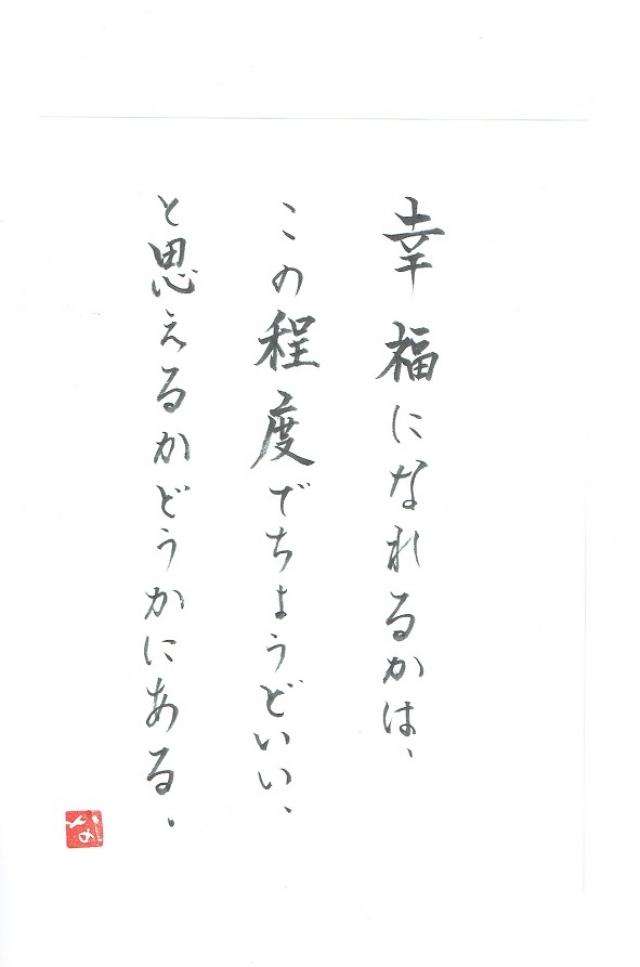 幸福になれるかは、
この程度でちょうどいい、
と思えるかどうかにある、
な